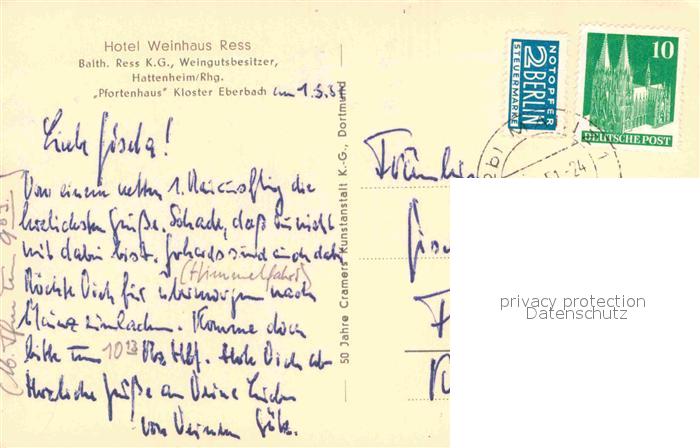 Hotel Weinhaus Ress
Balth. Ress K.G., Weingutsbesitzer,
Hattenheim/Rhg.
„Pfortenhaus" Kloster Eberbach am 1.5.51
Liebe Gisela!
Von einem netten 1. Maiausflug die
herzlichsten Grüße. Schade, daß Du nicht
mit dabei bist. Gerhards sind auch dabei
(Himmelfahrt)
Möchte Dich für übermorgen nach
Mainz einladen. Komme doch
bitte um 10 13 Mz Hbf. Hole Dich ab
Herzliche Grüße an Deine Lieben
von Deinem Götz.
50 Jahre Cramers Kunstanstalt K.-G., Dortmund
NOTOPFER
2 BERLIN
STEUERMARKE
10
DEUTSCHE POST
51-24
Fräulein
Gise
privacy protection
Datenschutz